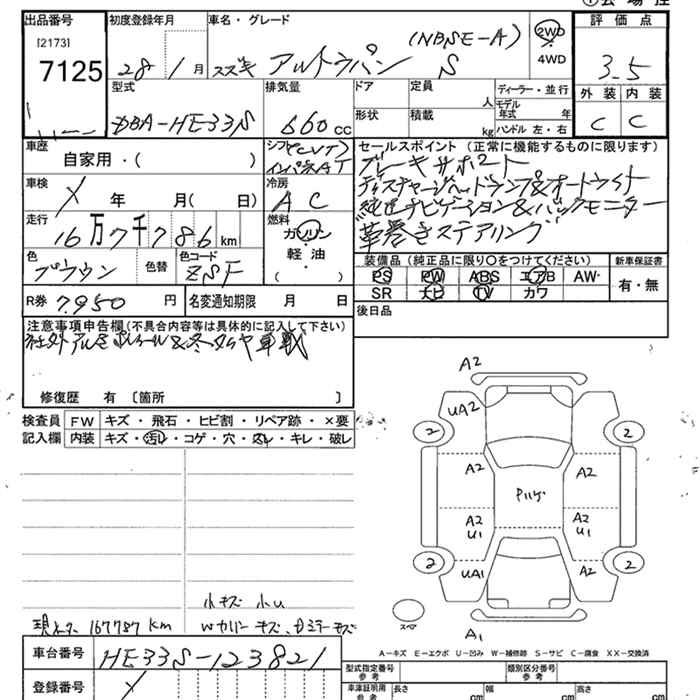 出品番号
[2173]
7125
初度登録年月
28年 1月
車名・グレード
スズキ アルトラパン (NBSE-A) S
2WD
4WD
評価点
3.5
外装 内装
C C
型式
DBA-HE33S
排気量
660cc
ドア
形状
定員
人
積載
kg
ディーラー・並行
モデル
年式 年
ハンドル 左・右
車歴
自家用・( )
シフト(CVT)
インパネAT
セールスポイント (正常に機能するものに限ります)
ブレーキサポート
ディスチャージヘッドランプ&オートライト
純正ナビゲーション&バックモニター
革巻きステアリング
車検
× 年 月( 日)
冷房
AC
走行
16万7千786km
燃料
ガソリン
・
軽油
( )
色
ブラウン
色替
色コード
ZSF
装備品 (純正品に限り○をつけてください)
PS PW ABS エアB AW
SR ナビ TV カワ
新車保証書
有・無
R券 7,950 円
名変通知期限 月 日
後日品
注意事項申告欄(不具合内容等は具体的に記入して下さい)
社外アルミホイール&冬タイヤ車載
修復歴 有 〔箇所 〕
検査員
記入欄
FW キズ・飛石・ヒビ割・リペア跡・×要
内装 キズ・汚れ・コゲ・穴・スレ・キレ・破レ
A2
UA2
2
2
A2
A2
Pルーフ
A2
U1
A2
U1
2
UA1
A2
2
スペア
A1
小キズ 小U
現メーター 167787km
A-キズ E-エクボ U-凹み W-補修跡 S-サビ C-腐食 XX-交換済
車台番号
HE33S-123821
型式指定番号
参考
類別区分番号
参考
登録番号
×
車庫証明用
参考
長さ cm
幅 cm
高さ cm